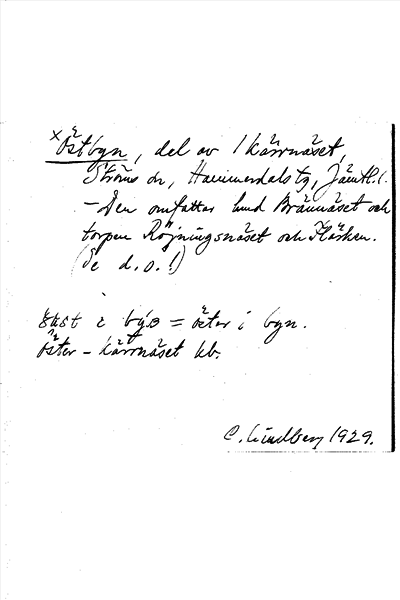 x Östbyn, del av 1 Kärrnäset,
Ströms sn, Hammerdals tg, Jämtl. l.
- Den omfattar hmd Brännäset och
torpen Röjningsnäset och Flärken.
(Se d. o. !)
öust i býɷ = öster i byn.
Öster-Kärrnäset kb.
C. Lindberg 1929.